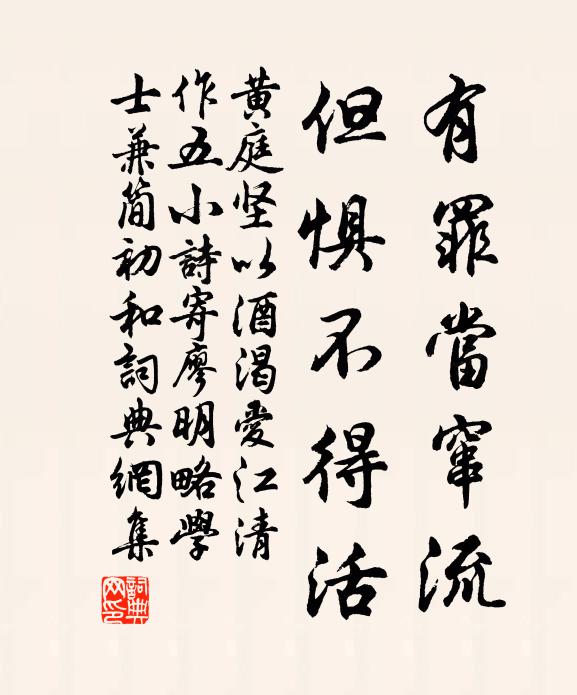 有罪當竄流
但惧不得活
黄庭坚以酒渴愛江清
作五小詩寄廖明略學
士兼简初和詞典網集
詞典網印